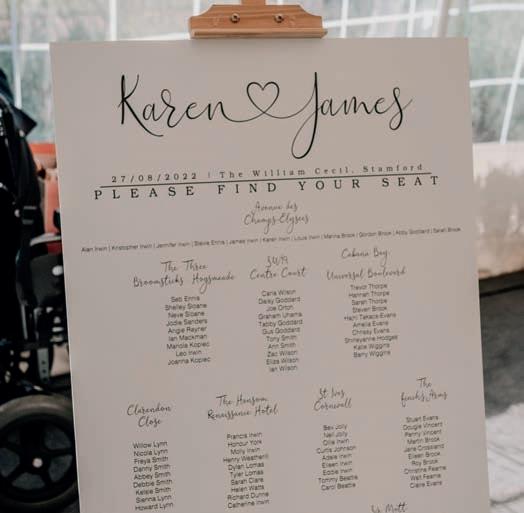 Karen James
27/08/2022 | The William Cecil, Stamford
PLEASE FIND YOUR SEAT
Avenue des
Champs-Elysees
Alan Irwin | Kristopher Irwin | Jennifer Irwin | Stevie Ennis | James Irwin | Karen Irwin | Louis Irwin | Marina Brook | Gordon Brook | Abby Goddard | Sarah Brook
The Three
Broomsticks Hogsmeade
Seb Ennis
Shelley Sloane
Neve Sloane
Jodie Sanders
Angie Rayner
Ian Mackman
Mariola Kopiec
Leo Irwin
Joanna Kopiec
SW19
Centre Court
Carla Wilson
Daisy Goddard
Joe Orton
Graham Uhama
Tabby Goddard
Gus Goddard
Tony Smith
Ann Smith
Zac Wilson
Eliza Wilson
Ian Wilson
Cabana Bay
Universal Boulevard
Trevor Thorpe
Hannah Thorpe
Sarah Thorpe
Steven Brook
Hajni Takacs-Evans
Amelia Evans
Chrissy Evans
Shireyanne Hodges
Kate Wiggins
Barry Wiggins
Clarendon
Close
Willow Lynn
Nicola Lynn
Freya Smith
Danny Smith
Abbey Smith
Debbie Smith
Kelsie Smith
Sienna Lynn
Howard Lynn
The Hansom
Renaissance Hotel
Francis Irwin
Honour York
Molly Irwin
Henry Weatherill
Dylan Lomas
Tyler Lomas
Sarah Clare
Helen Watts
Richard Dunne
Catherine Irwin
St Ives
Cornwall
Bev Jolly
Neil Jolly
Ollie Irwin
Curtis Johnson
Adele Irwin
Eileen Irwin
Eddie Irwin
Tommy Beattie
Carol Beattie
The
Arms
Stuart Evans
Dougie Vincent
Penny Vincent
Martin Brook
Jane Crossland
Eileen Brook
Roy Brook
Christina Fearne
Walt Fearne
Claire Evans
Matt